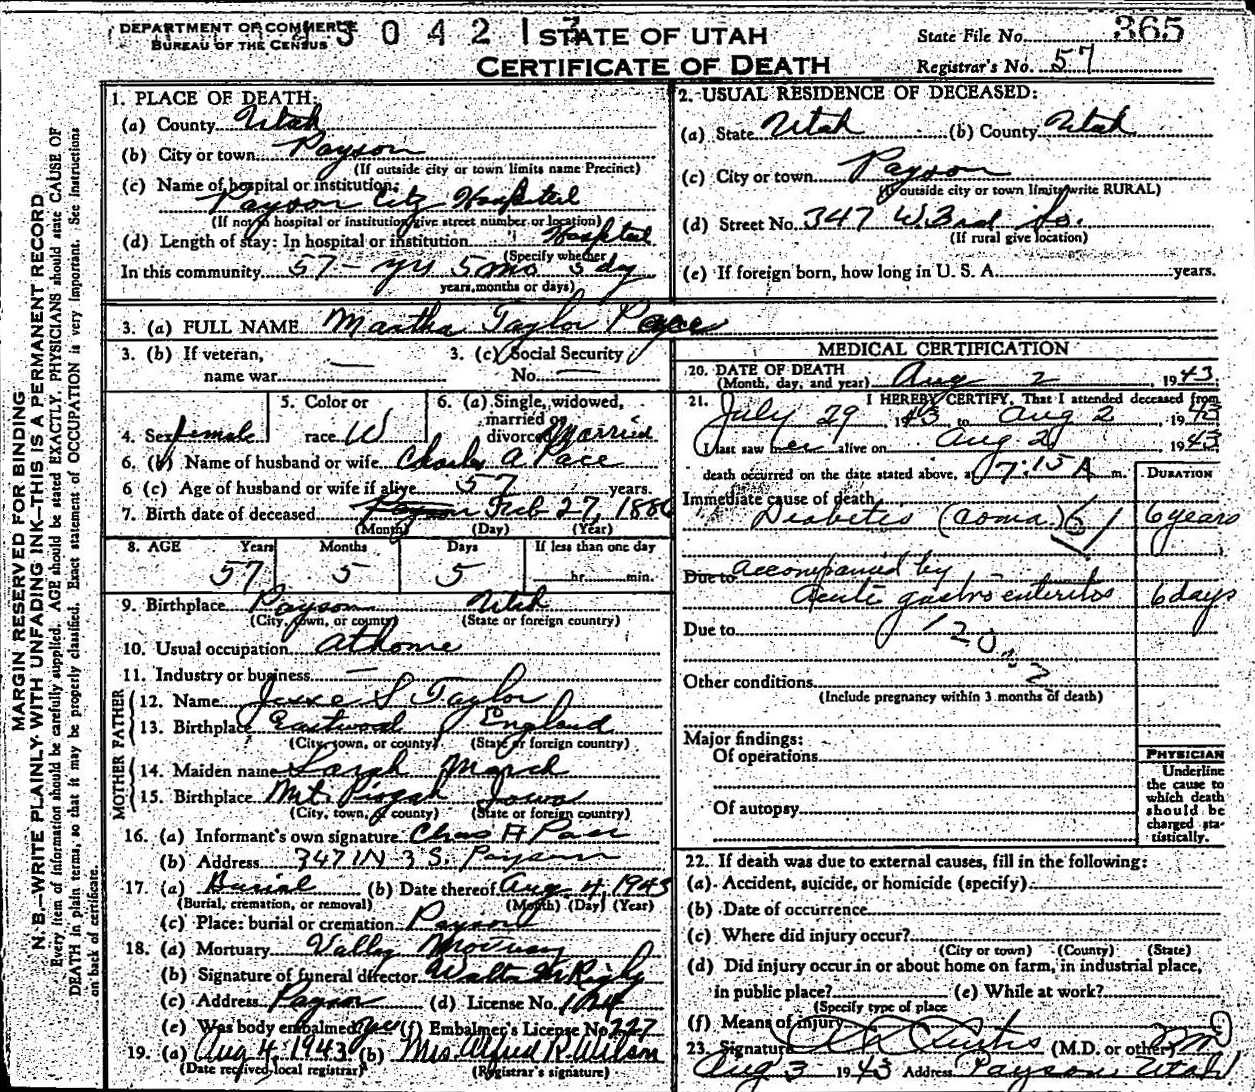 DEPARTMENT OF COMMERCE
BUREAU OF THE CENSUS
3 0 4 2 1 7
STATE OF UTAH
CERTIFICATE OF DEATH
State File No. 365
Registrar's No. 57
MARGIN RESERVED FOR BINDING
N. B.—WRITE PLAINLY WITH UNFADING INK—THIS IS A PERMANENT RECORD
Every item of information should be carefully supplied. AGE should be stated EXACTLY. PHYSICIANS should state CAUSE OF
DEATH in plain terms, so that it may be properly classified. Exact statement of OCCUPATION is very important. See instructions
on back of certificate.
1. PLACE OF DEATH:
(a) County Utah
(b) City or town Payson
(If outside city or town limits name Precinct)
(c) Name of hospital or institution:
Payson City Hospital
(If not in hospital or institution give street number or location)
(d) Length of stay: In hospital or institution Hospital
(Specify whether
In this community 57 - yrs 5 mo 5 dy
years, months or days)
2. USUAL RESIDENCE OF DECEASED:
(a) State Utah (b) County Utah
(c) City or town Payson
(If outside city or town limits write RURAL)
(d) Street No. 347 W. 3rd So.
(If rural give location)
(e) If foreign born, how long in U. S. A. years.
3. (a) FULL NAME Martha Taylor Pace
3. (b) If veteran, name war —
3. (c) Social Security No. —
4. Sex female
5. Color or race W
6. (a) Single, widowed, married or divorced Married
6. (b) Name of husband or wife Charles A Pace
6 (c) Age of husband or wife if alive 57 years.
7. Birth date of deceased Payson Feb 27, 1886
(Month) (Day) (Year)
8. AGE Years Months Days If less than one day
57 5 5 hr. min.
9. Birthplace Payson Utah
(City, town, or county) (State or foreign country)
10. Usual occupation at home
11. Industry or business —
FATHER
12. Name S Taylor
13. Birthplace Eastwood England
(City, town, or county) (State or foreign country)
MOTHER
14. Maiden name Sarah March
15. Birthplace Mt. Pisgah Iowa
(City, town, or county) (State or foreign country)
16. (a) Informant's own signature Chas A Pace
(b) Address 347 W 3 S. Payson
17 (a) Burial (b) Date thereof Aug 4 1943
(Burial, cremation, or removal) (Month) (Day) (Year)
(c) Place: burial or cremation Payson
18. (a) Mortuary Valley Mortuary
(b) Signature of funeral director
(c) Address Payson (d) License No.
(e) Was body embalmed? yes (f) Embalmer's License No. 227
19. (a) Aug 4, 1943 (b) Mrs. Alfred R. Wilson
(Date received local registrar) (Registrar's signature)
MEDICAL CERTIFICATION
20. DATE OF DEATH
(Month, day, and year) Aug 2, 1943
21. I HEREBY CERTIFY, That I attended deceased from
July 29 1943 to Aug 2, 1943
I last saw her alive on Aug 2, 1943
death occurred on the date stated above, at 7:15 A m.
DURATION
Immediate cause of death
Diabetes (Coma) 61 6 years
Due to accompanied by
Acute gastro enteritis 6 days
Due to
120
Other conditions
(Include pregnancy within 3 months of death)
Major findings:
Of operations
Of autopsy
PHYSICIAN
Underline
the cause to
which death
should be
charged sta-
tistically.
22. If death was due to external causes, fill in the following:
(a) Accident, suicide, or homicide (specify)
(b) Date of occurrence
(c) Where did injury occur?
(City or town) (County) (State)
(d) Did injury occur in or about home on farm, in industrial place,
in public place? (e) While at work?
(Specify type of place
(f) Means of injury
23. Signature Curtis (M.D. or other) MD
Aug 3 1943 Address Payson, Utah